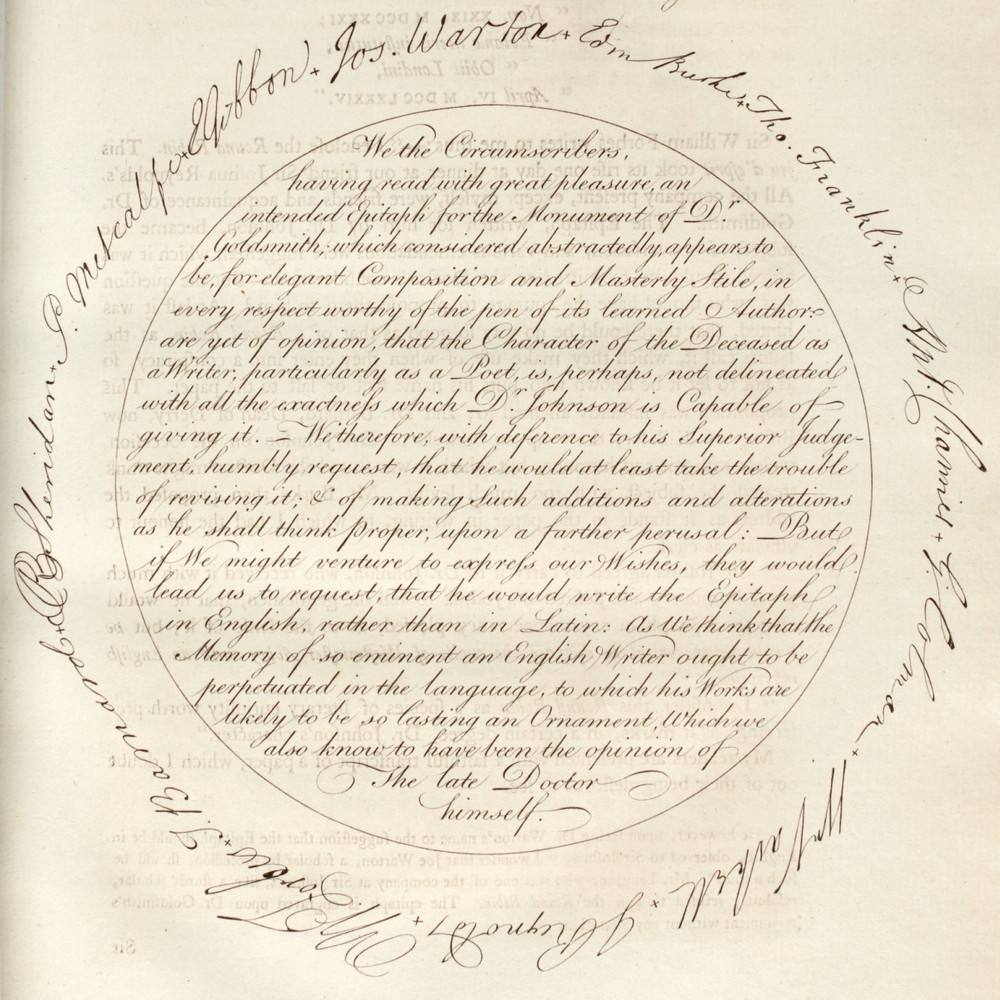 We the Circumscribers,
having read with great pleasure, an
intended Epitaph for the Monument of Dr.
Goldsmith; which considered abstractedly, appears to
be, for elegant Composition and Masterly Stile, in
every respect worthy of the pen of its learned Author:
are yet of opinion, that the Character of the Deceased as
a Writer, particularly as a Poet, is, perhaps, not delineated
with all the exactness which Dr. Johnson is Capable of
giving it. — We therefore, with deference to his Superior Judge-
ment, humbly request, that he would at least take the trouble
of revising it; & of making Such additions and alterations
as he shall think proper, upon a farther perusal: But
if We might venture to express our Wishes, they would
lead us to request, that he would write the Epitaph
in English, rather than in Latin: As We think that the
Memory of so eminent an English Writer ought to be
perpetuated in the language, to which his Works are
likely to be so lasting an Ornament, Which we
also know to have been the opinion of
The late Doctor
himself.
EGibbon +
Jos. Warton +
Edm Burke +
Tho. Franklin +
Ant. Chamier +
G. Colman +
Wm Vashell +
J Reynolds +
W Forbes +
T. Barnard +
RB Sheridan +
P. Metcalfe +